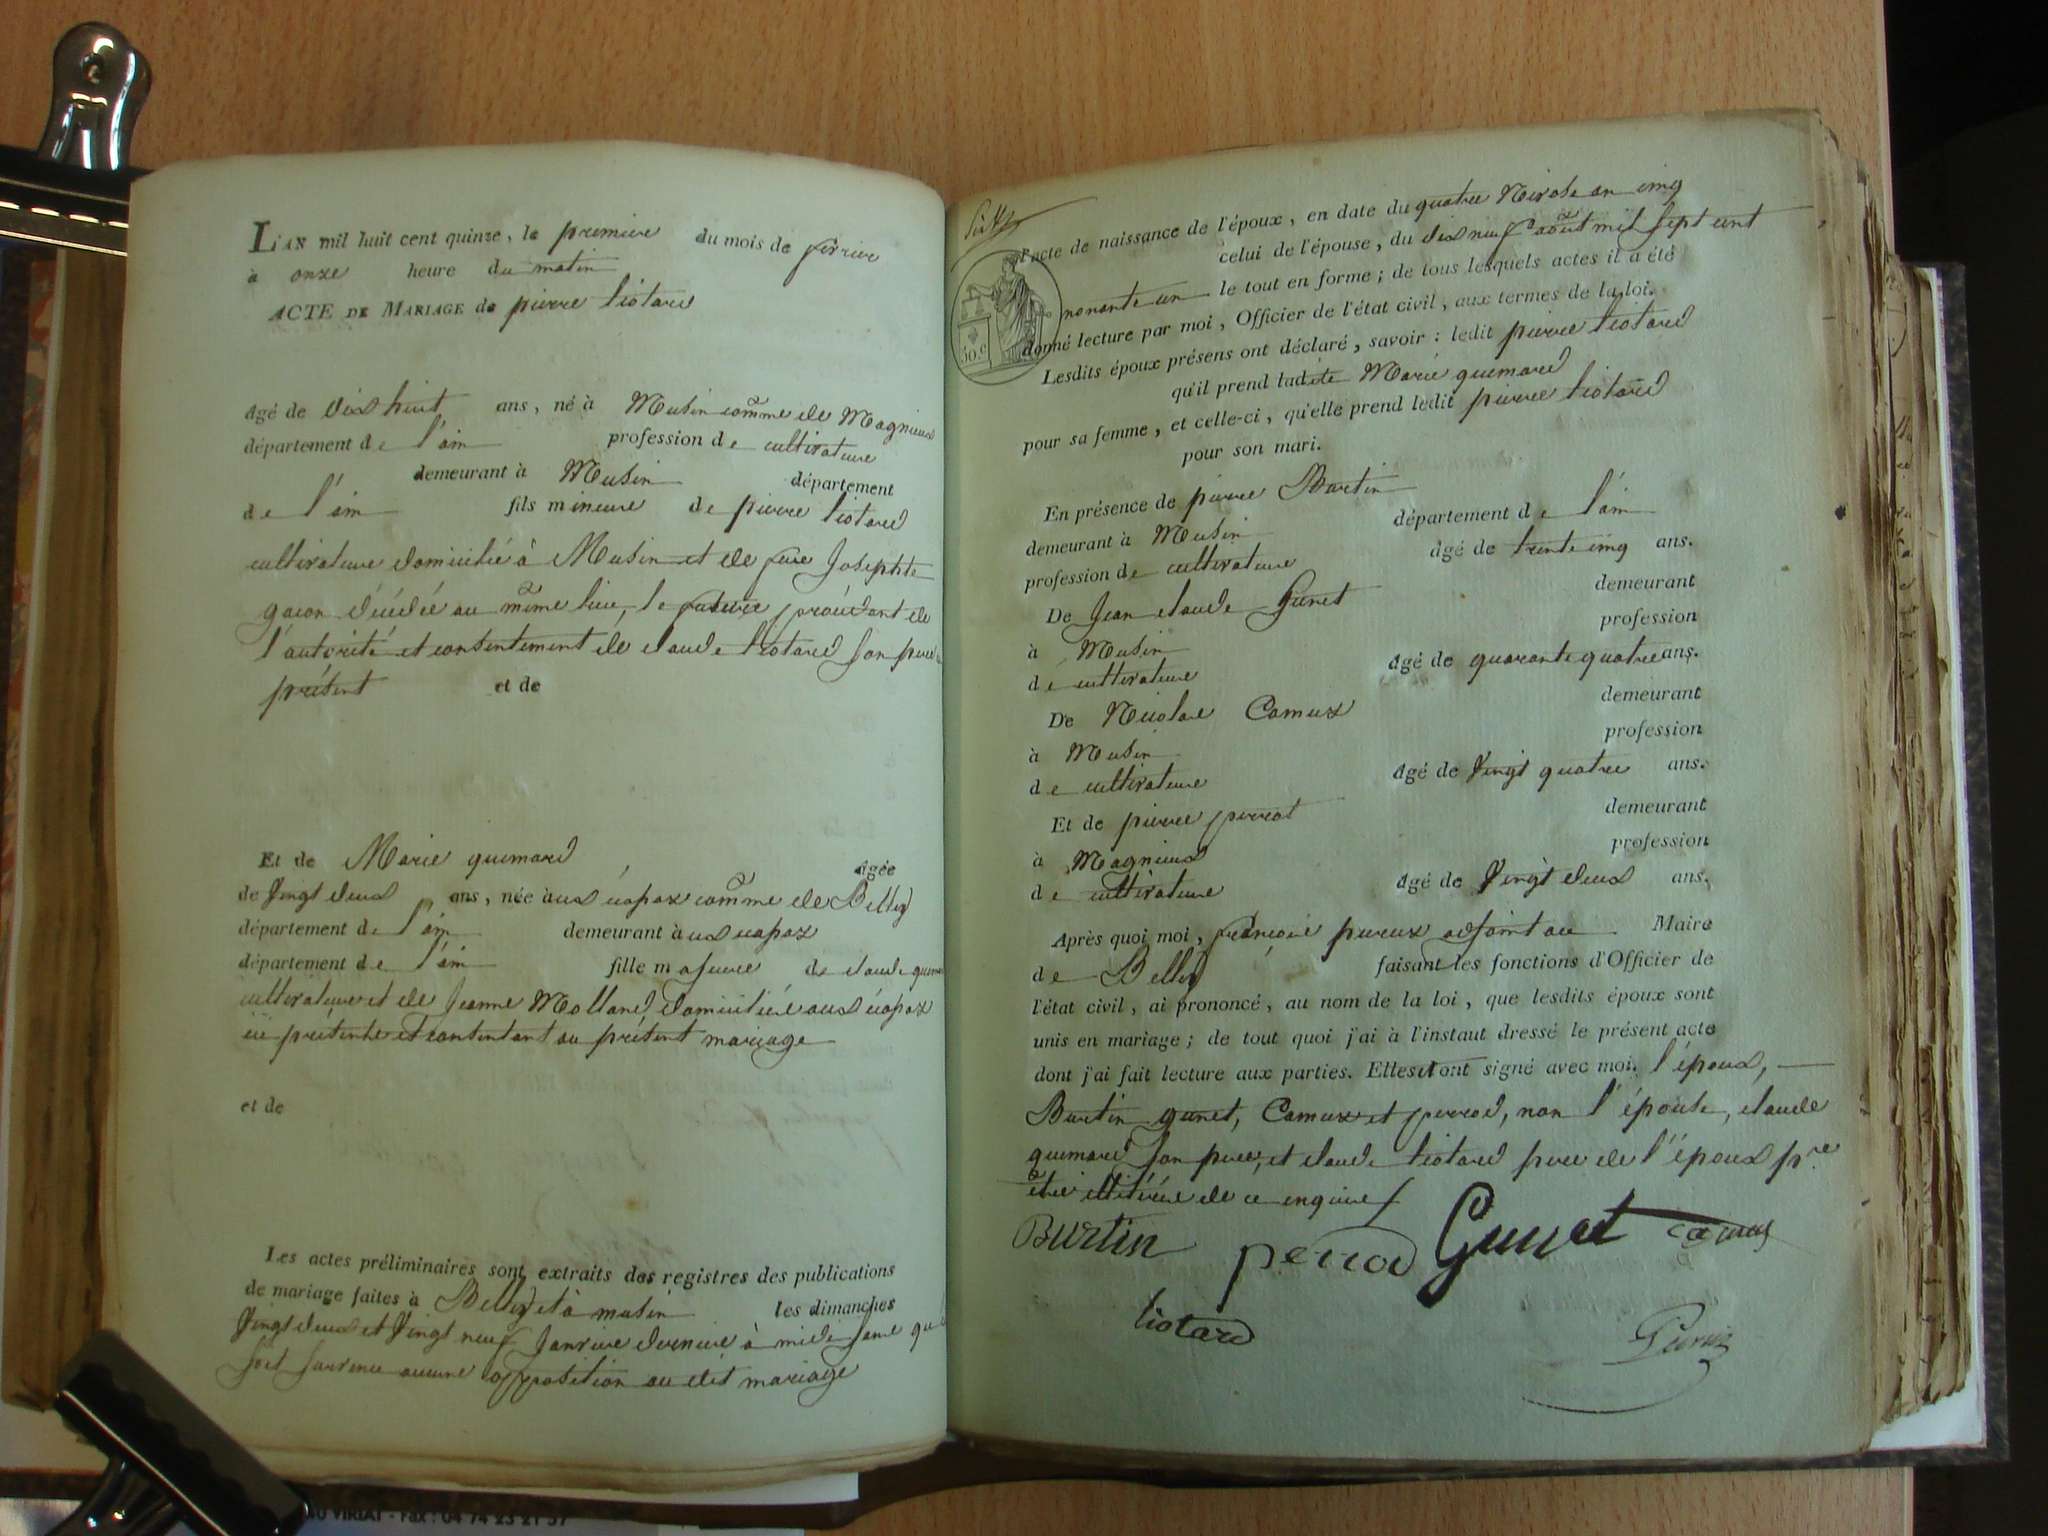 L'AN mil huit cent quinze, le premiere du mois de fevrier
à onze heure du matin
ACTE DE MARIAGE de pierre liotard
agé de dix huit ans, né à Musin comme de Magnieux
département de l'ain profession de cultivateur
demeurant à Musin département
de l'ain fils mineure de pierre liotard
cultivateur domicilié à Musin et de feue Josephte
gacon décédée au même lieu, le futeur procédant de
l'autorité et consentement de claude liotard son pere
présent et de
Et de Marie guimard agée
de Vingt deux ans, née à comme de Belley
département de l'ain demeurant à
département de l'ain fille majeure de claude guimard
cultivateur et de Jeanne Molland domiciliée
ici présente et consentant au présent mariage
et de
Les actes préliminaires sont extraits des registres des publications
de mariage faites à Belley et à musin les dimanches
Vingt deux et Vingt neuf Janvier dernier à midi sans qu'il
soit survenu aucune opposition au dit mariage
l'acte de naissance de l'époux, en date du quatre Nivose an cinq
celui de l'épouse, du dix neuf août mil sept cent
nonante un le tout en forme; de tous lesquels actes il a été
donné lecture par moi, Officier de l'état civil, aux termes de la loi.
50.c
Lesdits époux présens ont déclaré, savoir: ledit pierre liotard
qu'il prend ladite Marie guimard
pour sa femme, et celle-ci, qu'elle prend ledit pierre liotard
pour son mari.
En présence de pierre Burtin
demeurant à Musin département de l'ain
profession de cultivateur agé de trente cinq ans.
De Jean claude Gunet demeurant
à Musin profession
de cultivateur agé de quarante quatre ans.
De Nicolas Camus demeurant
à Musin profession
de cultivateur agé de Vingt quatre ans.
Et de pierre perrod demeurant
à Magnieux profession
de cultivateur agé de Vingt deux ans.
Après quoi moi, adjoint au Maire
de Belley faisant les fonctions d'Officier de
l'état civil, ai prononcé, au nom de la loi, que lesdits époux sont
unis en mariage; de tout quoi j'ai à l'instaut dressé le présent acte
dont j'ai fait lecture aux parties. Elles ont signé avec moi, l'époux,
Burtin gunet, Camus et perrod, non l'épouse, claude
guimard son pere, et claude liotard pere de l'époux pre
être illitérée de ce enquive
Burtin perrod Gunet camus
liotard
VIRIAT - Fax : 04 74 23 21 57